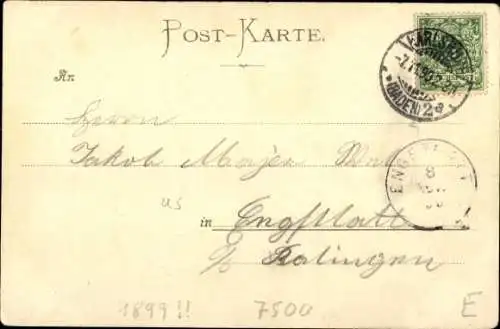 POST-KARTE.
KARLSRUHE
* (BADEN) 2 a *
An
Herrn
Jakob Majer
ENGSTLATT
8
us
in Engstlatt
b/ Balingen
1899!! 7500 E